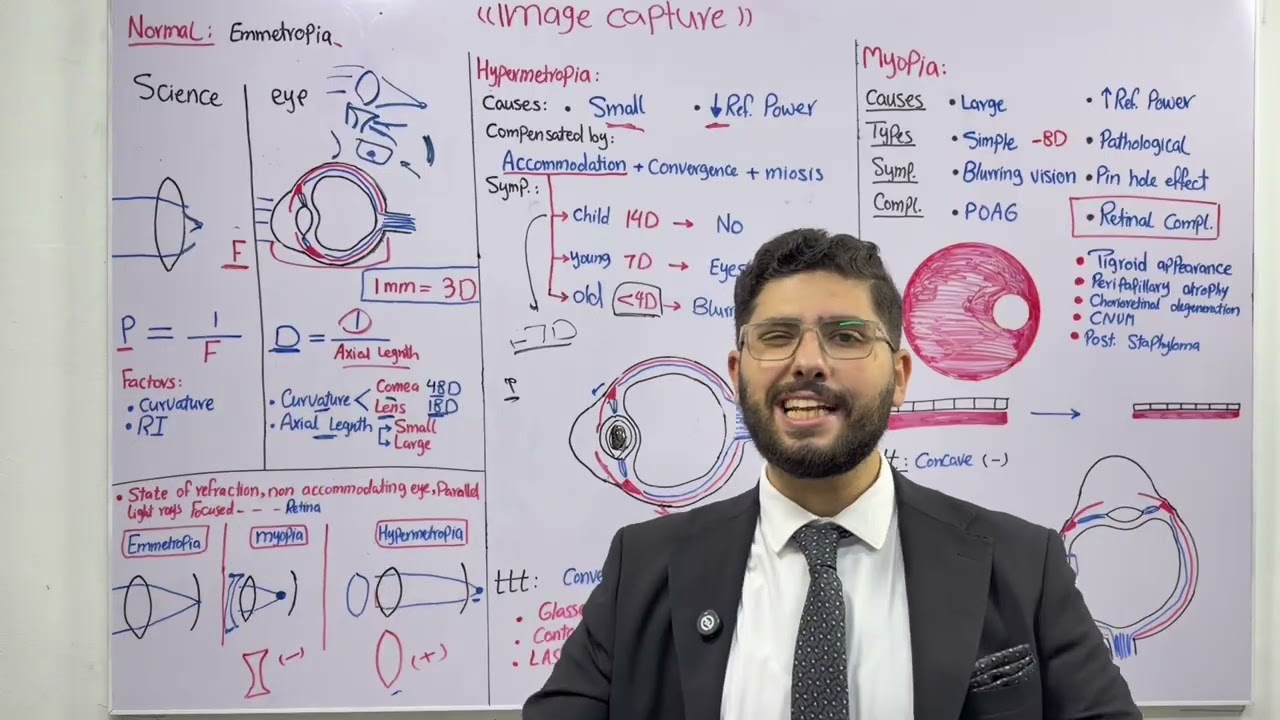 «Image capture»
Normal: Emmetropia
Science
eye
F
1mm = 3D
P = 1 / F
D = 1 / Axial Legnth
Factors:
• Curvature
• RI
• Curvature < Cornea 48D
Lens 18D
• Axial Legnth → Small
→ Large
• State of refraction, non accommodating eye, Parallel
light rays Focused - - - Retina
Emmetropia
myopia
Hypermetropia
(-)
(+)
Hypermetropia:
Causes: • Small • ↓ Ref. Power
Compensated by:
Accommodation + Convergence + miosis
Symp.:
→ Child 14D → No
→ Young 7D → Eyes
→ old <4D → Blurr
-7D
ttt: Conve
• Glasse
• Conta
• LAS
Myopia:
Causes • Large • ↑ Ref. Power
Types • Simple -8D • Pathological
Symp. • Blurring vision • Pin hole effect
Compl. • POAG • Retinal Compl.
• Tigroid appearance
• Peripapillary atrophy
• Chorioretinal degeneration
• CNVM
• Post. Staphyloma
tt: Concave (-)